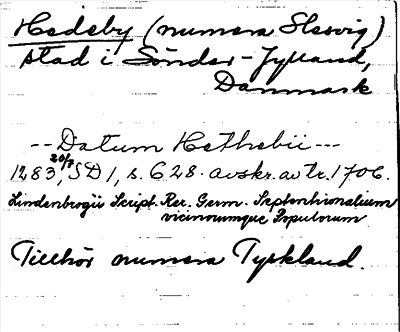 Hedeby (numera Slesvig)
stad i Sönder-Jylland,
Danmark
-- Datum Hethebii ---
1283 20/7, SD 1, s. 628. avskr. av tr. 1706.
Lindenbrogii Script. Rer. Germ. Septentrionalium
vicinorumque Populorum
Tillhör numera Tyskland.